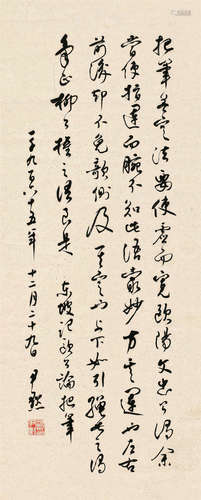 把筆無定法要使虛而寬歐陽文忠公謂余
當使指運而腕不知此語最妙方其運也左右
前後却不免欹側及其定也上下如引繩此之謂
筆正柳公權之語良是 東坡記歐公論把筆
一千九百六十五年 十二月二十九日 尹默